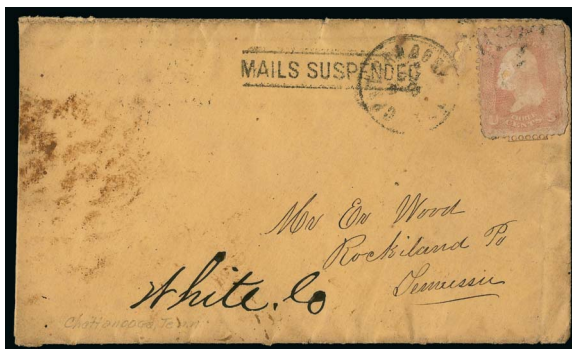 MAILS SUSPENDED
Mr En Wood
Rockiland Po
Tennessee
White. Co
Chattanooga, Tenn